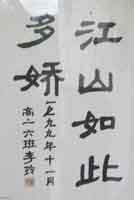 江山如此
多娇
一九九九年十一月
高二六班李玲